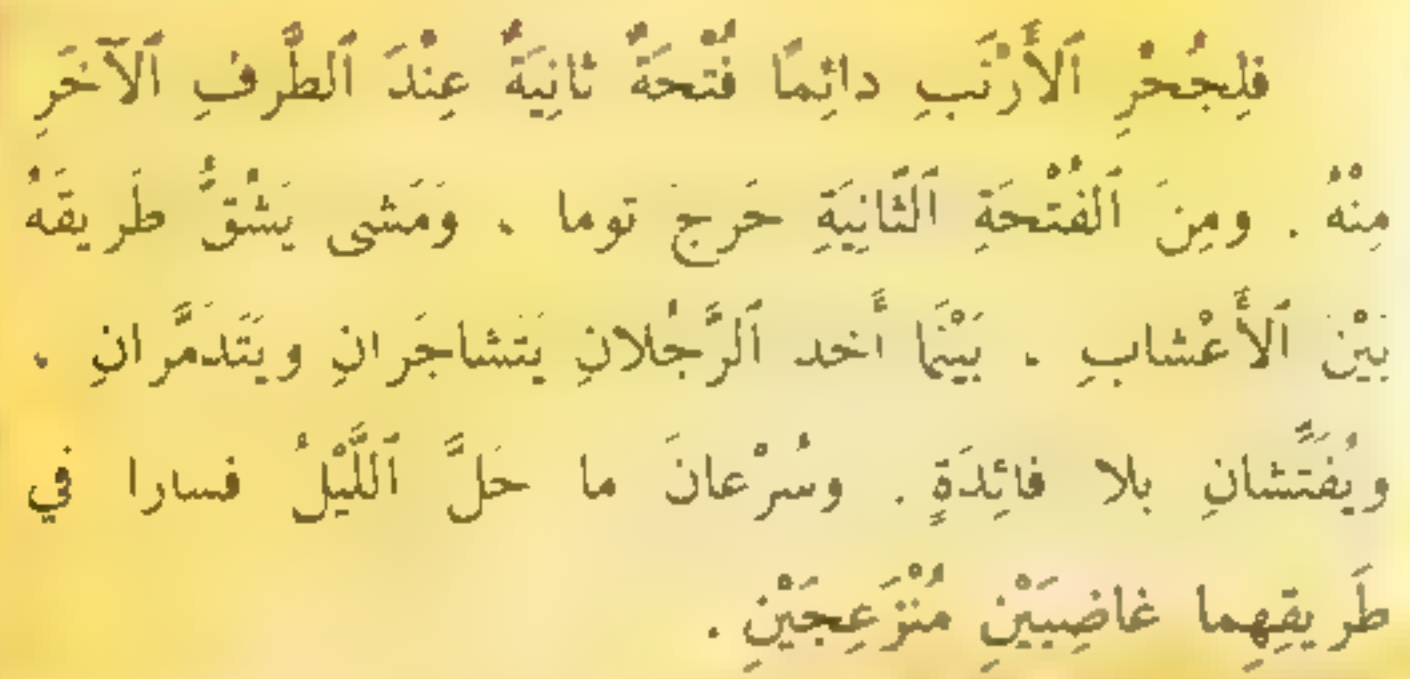 فَلِجُحْرِ ٱلْأَرْنَبِ دائِمًا فُتْحَةٌ ثانِيَةٌ عِنْدَ ٱلطَّرفِ ٱلآخَرِ
مِنْهُ . ومِنَ ٱلفُتْحَةِ ٱلثَّانِيَةِ خَرجَ توما . ومَشى يَشُقُّ طَريقَهُ
بَيْنَ ٱلأَعْشابِ . بَيْنَما أَخذ ٱلرَّجُلانِ يَتَشاجَرانِ ويَتَذَمَّرانِ .
ويُفَتِّشانِ بلا فائِدَةٍ . وسُرْعانَ ما حَلَّ ٱللَّيْلُ فسارا في
طَريقِهِما غاضِبَيْنِ مُنْزَعِجَيْنِ .